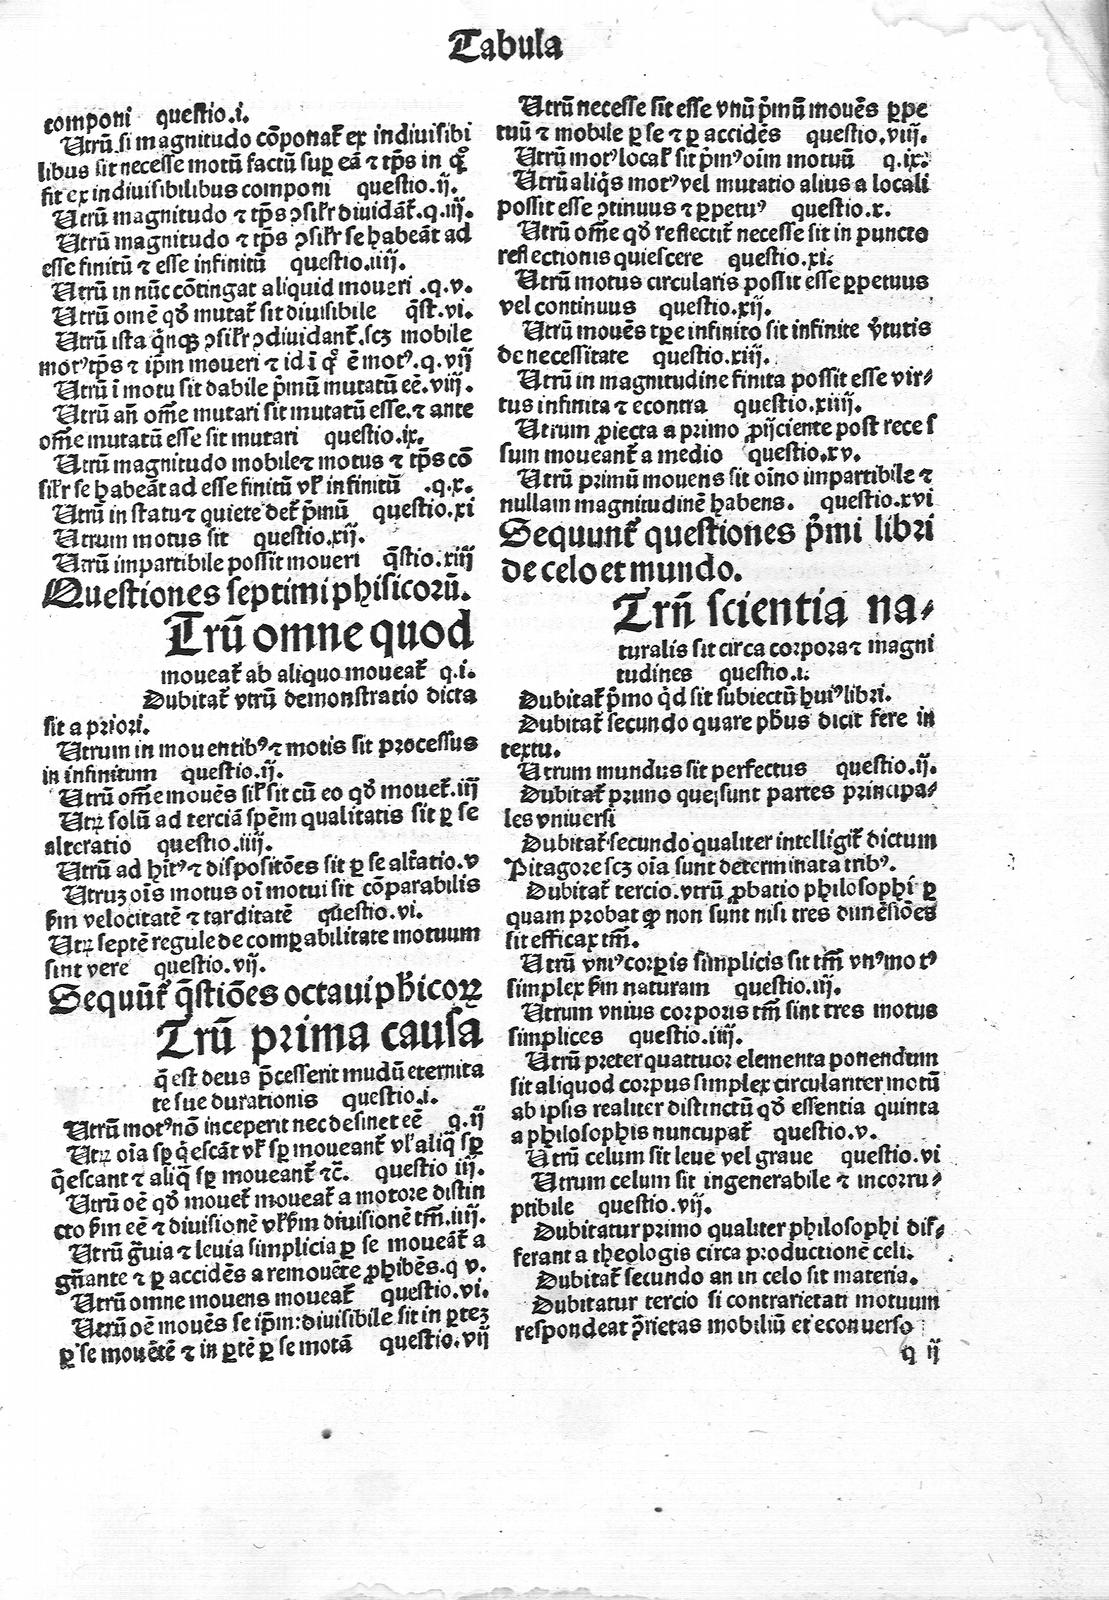 Tabula
componi questio.i.
Utrū.si magnitudo cōponat̄ ex indiuisibi
libus sit necesse motū factū sup eā ⁊ tp̄s in q̊
fit ex indiuisibilibus componi questio.ij.
Utrū magnitudo ⁊ tp̄s ꝯsil'r diuidāt̄.q.iij.
Utrū magnitudo ⁊ tp̄s ꝯsil'r se habeāt ad
esse finitū ⁊ esse infinitū questio.iiij.
Utrū in nūc cōtingat aliquid moueri .q.v.
Utrū omē qd̄ mutat̄ sit diuisibile q̄st.vi.
Utrū ista q̄nqꝫ ꝯsil'r ꝯdiuidant̄.scꝫ mobile
motꝰtp̄s ⁊ ip̄m moueri ⁊ id ī q̊ ē motꝰ.q.vij
Utrū ī motu sit dabile p̄mū mutatū eē.viij.
Utrū añ om̄e mutari sit mutatū esse.⁊ ante
om̄e mutatū esse sit mutari questio.ix.
Utrū magnitudo mobile⁊ motus ⁊ tp̄s cō
sil'r se habeāt ad esse finitū vl' infinitū .q.x.
Utrū in statu⁊ quiete det̄ p̄mū questio.xi
Utrum motus sit questio.xij.
Utrū impartibile possit moueri q̄stio.xiij
Questiones septimi phisicorū.
Trū omne quod
moueat̄ ab aliquo moueat̄ q.i.
Dubitat̄ vtrū demonstratio dicta
sit a priori.
Utrum in mouentibꝰ⁊ motis sit processus
in infinitum questio.ij.
Utrū om̄e mouēs sil' sit cū eo qd̄ mouet̄.iij
Utꝝ solū ad terciā sp̄em qualitatis sit ꝑ se
alteratio questio.iiij.
Utrū ad hit'ꝰ⁊ dispositōes sit ꝑ se alt̄atio.v
Utruꝫ oīs motus oī motui sit cōparabilis
ẜm velocitatē ⁊ tarditatē questio.vi.
Utꝝ septē regule de comꝑabilitate motuum
sint vere questio.vij.
Sequūt̄ q̄stiōes octaui ph̄icoꝝ
Trū prima causa
q̄ est deus p̄cesserit mūdū eternita
te sue durationis questio.i.
Utrū motꝰnō inceperit nec desinet eē q.ij
Utꝝ oīa sꝑ q̄escāt vl' sꝑ moueant̄ vl'aliq̄ sꝑ
q̄escant ⁊ aliq̄ sꝑ moueant̄ ⁊c̄. questio iij.
Utrū oē qd̄ mouet̄ moueat̄ a motore distin
cto ẜm eē ⁊ diuisionē vl'ẜm diuisionē tm̄.iiij.
Utrū g̃uia ⁊ leuia simplicia ꝑ se moueāt̄ a
gñante ⁊ ꝑ accidēs a remouēte ꝓhibēs.q v.
Utrū omne mouens moueat̄ questio.vi.
Utrū oē mouēs se ip̄m:diuisibile sit in ꝑteꝫ
ꝑ se mouētē ⁊ in ꝑtē ꝑ se motā questio.vij
Utrū necesse sit esse vnū p̄mū mouēs ꝑpe
tuū ⁊ mobile ꝑ se ⁊ ꝑ accidēs questio.viij.
Utrū motꝰlocal' sit p̄mꝰoīm motuū q.ix.
Utrū aliq̄s motꝰvel mutatio alius a locali
possit esse ꝯtinuus ⁊ ꝑpetuꝰ questio.x.
Utrū om̄e qd̄ reflectit̄ necesse sit in puncto
reflectionis quiescere questio.xi.
Utrū motus circularis possit esse ꝑpetuus
vel continuus questio.xij.
Utrū mouēs tp̄e infinito sit infinite v̄tutis
de necessitate questio.xiij.
Utrū in magnitudine finita possit esse vir⸗
tus infinita ⁊ econtra questio.xiiij.
Utrum ꝓiecta a primo ꝓijciente post reces
sum moueant̄ a medio questio.xv.
Utrū primū mouens sit oīno impartibile ⁊
nullam magnitudinē habens. questio.xvi
Sequunt̄ questiones p̄mi libri
de celo et mundo.
Trū scientia na⸗
turalis sit circa corpora⁊ magni
tudines questio.i.
Dubitat̄ p̄mo q̄d sit subiectū huiꝰlibri.
Dubitat̄ secundo quare ph̄us dicit fere in
textu.
Utrum mundus sit perfectus questio.ij.
Dubitat̄ primo que sunt partes principa⸗
les vniuersi
Dubitat̄ secundo qualiter intelligit̄ dictum
Pitagore scꝫ oīa sunt determinata tribꝰ.
Dubitat̄ tercio.vtrū ꝓbatio philosophi ꝑ
quam probat ꝙ non sunt nisi tres dimēsiōes
sit efficax tm̄.
Utrū vniꝰcorꝑis simplicis sit tm̄ vnꝰmotꝰ
simplex ẜm naturam questio.iij.
Utrum vnius corporis tm̄ sint tres motus
simplices questio.iiij.
Utrū preter quattuor elementa ponendum
sit aliquod corpus simplex circulariter motū
ab ipsis realiter distinctū qd̄ essentia quinta
a philosophis nuncupat̄ questio.v.
Utrū celum sit leue vel graue questio.vi
Utrum celum sit ingenerabile ⁊ incorru⸗
ptibile questio.vij.
Dubitatur primo qualiter philosophi dif⸗
ferant a theologis circa productionē celi.
Dubitat̄ secundo an in celo sit materia.
Dubitatur tercio si contrarietati motuum
respondeat ꝯ̄rietas mobiliū et econuerso
q ij